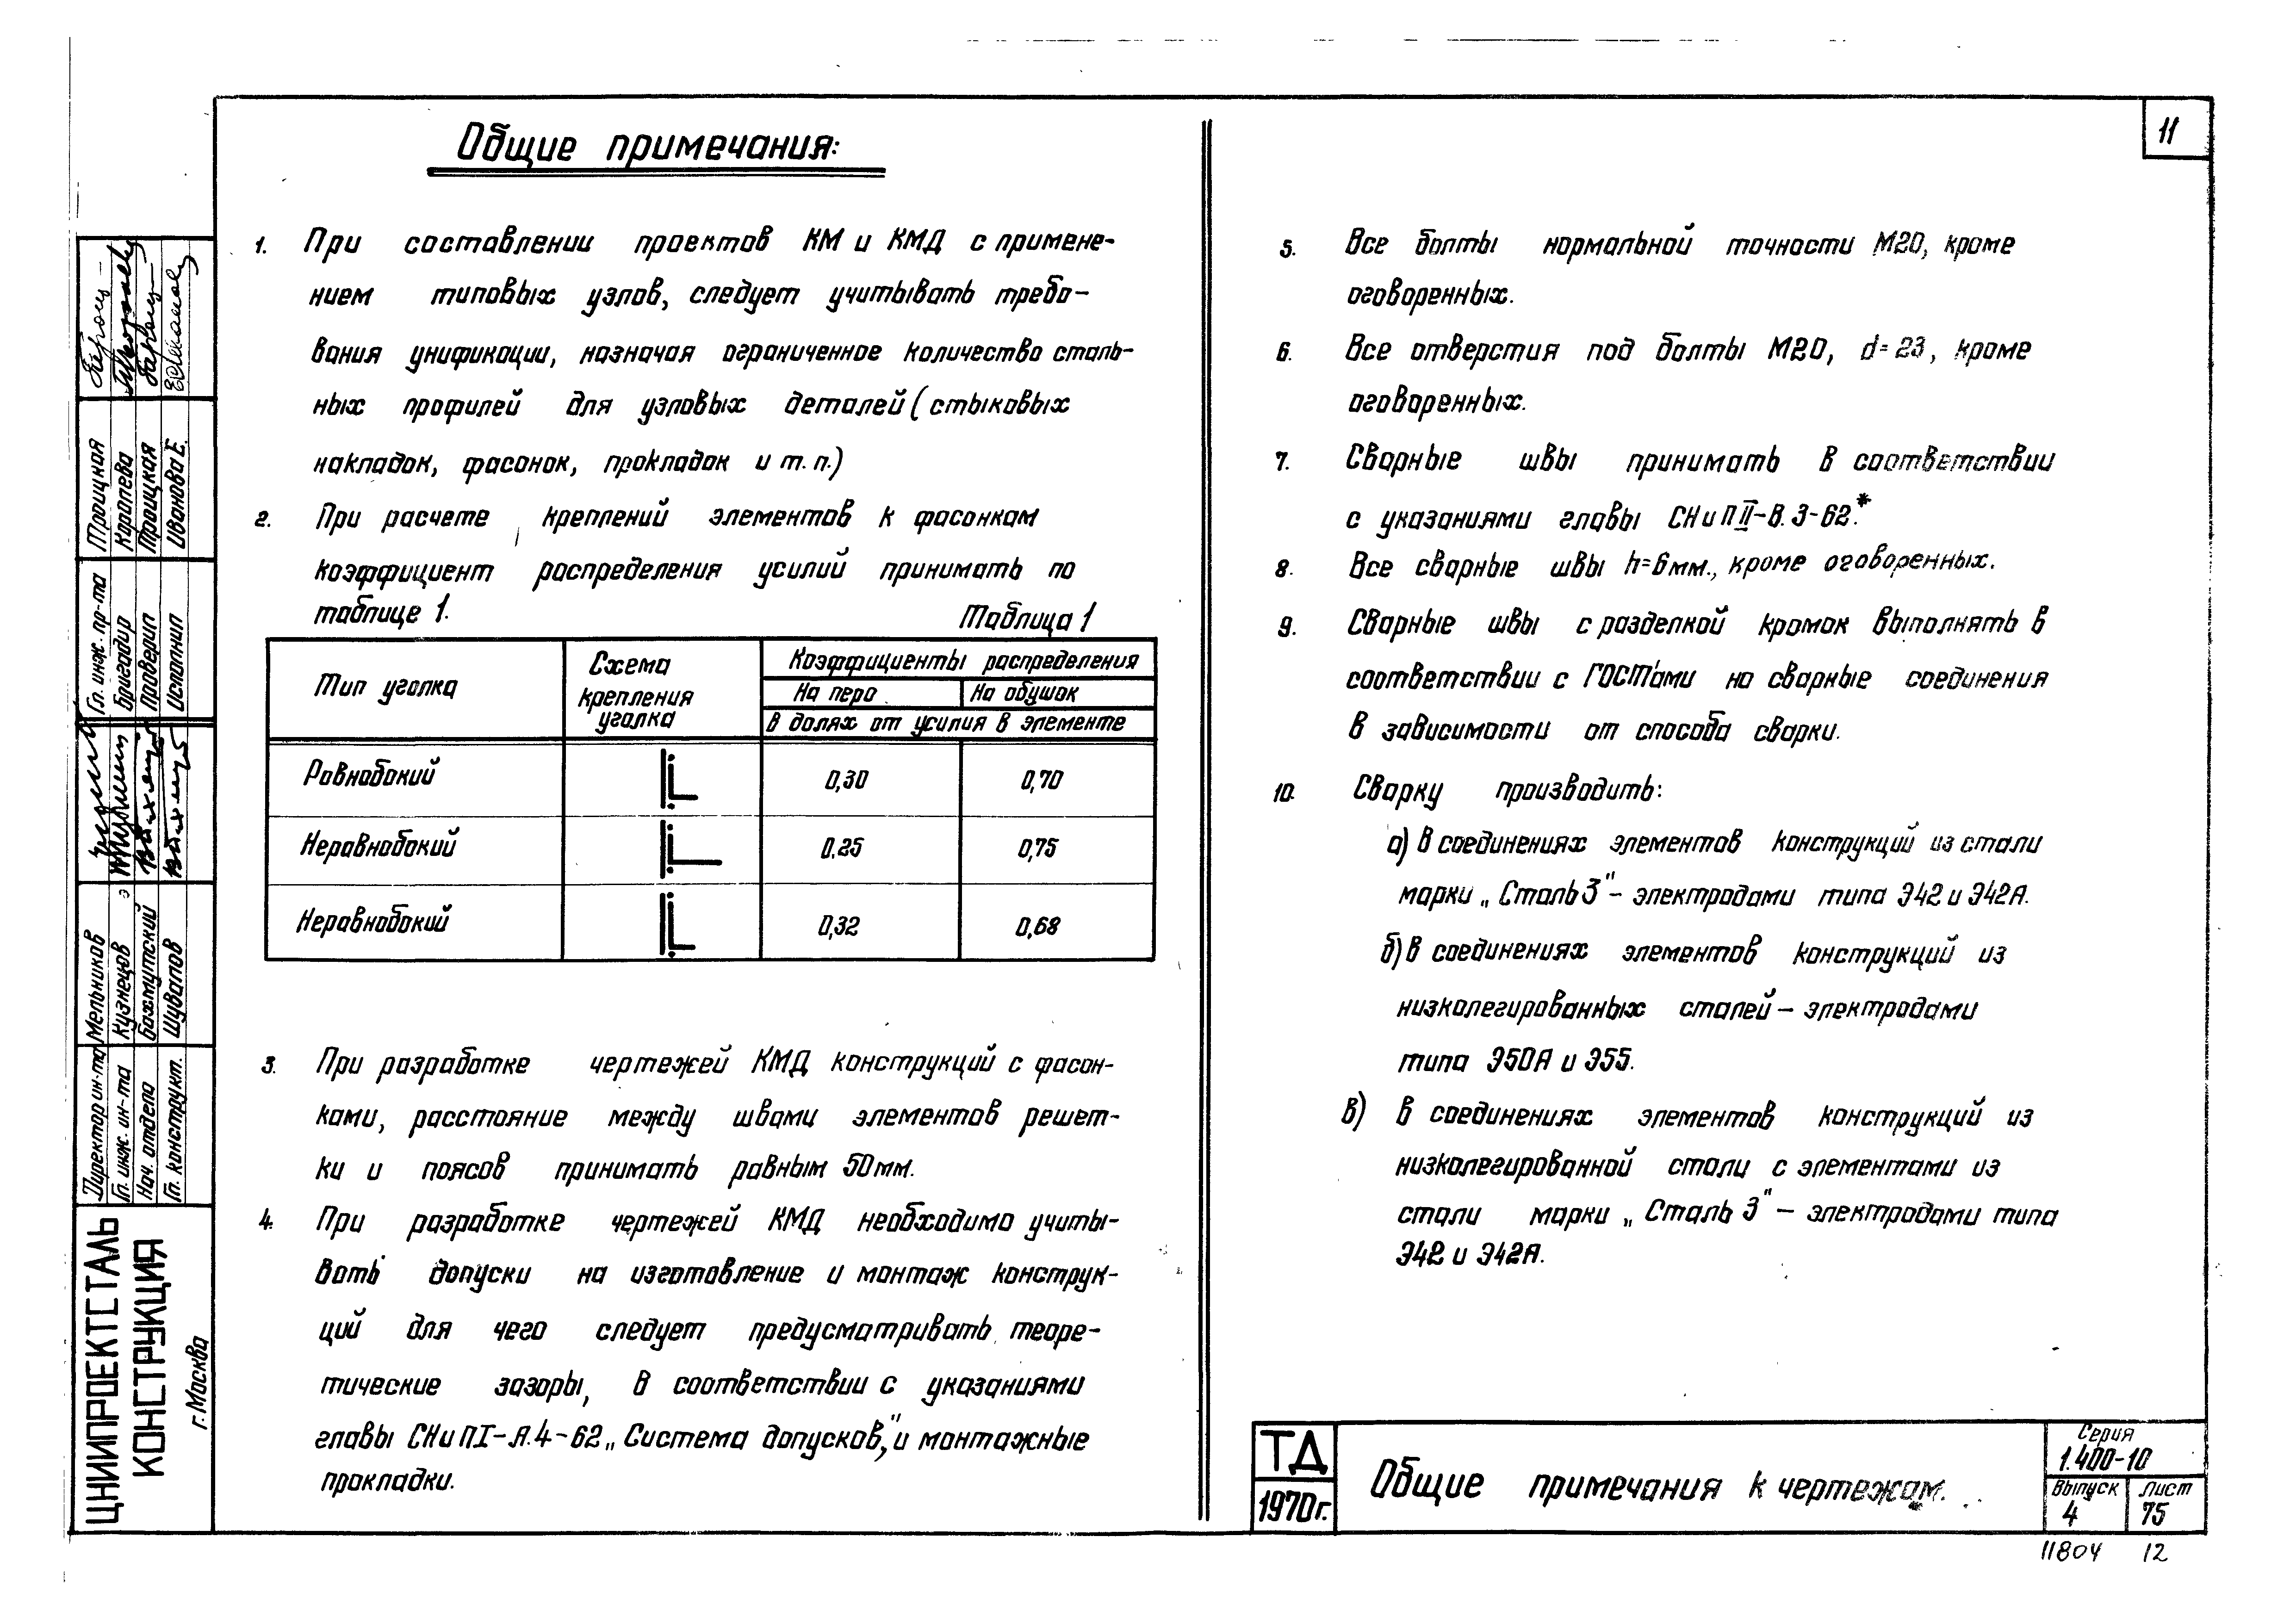 11
Общие примечания:
1. При составлении проектов КМ и КМД с примене-
нием типовых узлов, следует учитывать требо-
вания унификации, назначая ограниченное количество сталь-
ных профилей для узловых деталей (стыковых
накладок, фасонок, прокладок и т.п.)
2. При расчете креплений элементов к фасонкам
коэффициент распределения усилий принимать по
таблице 1.
Таблица 1
Тип уголка
Схема
крепления
уголка
Коэффициенты распределения
На перо На обушок
В долях от усилия в элементе
Равнобокий 0,30 0,70
Неравнобокий 0.25 0,75
Неравнобокий 0,32 0,68
3. При разработке чертежей КМД конструкций с фасон-
ками, расстояние между швами элементов решет-
ки и поясов принимать равным 50мм.
4. При разработке чертежей КМД необходимо учиты-
вать допуски на изготовление и монтаж конструк-
ций для чего следует предусматривать теоре-
тические зазоры, в соответствии с указаниями
главы СНиП I-А.4-62 „Система допусков," и монтажные
прокладки.
5. Все болты нормальной точности М20, кроме
оговоренных.
6. Все отверстия под болты М20, d=23, кроме
оговоренных.
7. Сварные швы принимать в соответствии
с указаниями главы СНиП II-В.3-62.*
8. Все сварные швы h=6мм., кроме оговоренных.
9. Сварные швы с разделкой кромок выполнять в
соответствии с ГОСТ'ами на сварные соединения
в зависимости от способа сварки.
10. Сварку производить:
а) В соединениях элементов конструкций из стали
марки „Сталь 3" - электродами типа Э42 и Э42А.
б) В соединениях элементов конструкций из
низколегированных сталей - электродами
типа Э50А и Э55.
в) В соединениях элементов конструкций из
низколегированной стали с элементами из
стали марки „Сталь 3" - электродами типа
Э42 и Э42А.
ТД
1970г.
Общие примечания к чертежам.
Серия
1.400-10
Выпуск Лист
4 75
11804 12
Гл. инж. пр-та Троицкая
Бригадир Королева
Проверил Троицкая
Исполнил Иванова Е.
Директор ин-та Мельников
Гл. инж. ин-та Кузнецов
Нач. отдела Бахмутский
Гл. конструкт. Шувалов
ЦНИИПРОЕКТСТАЛЬ
КОНСТРУКЦИЯ
г. Москва